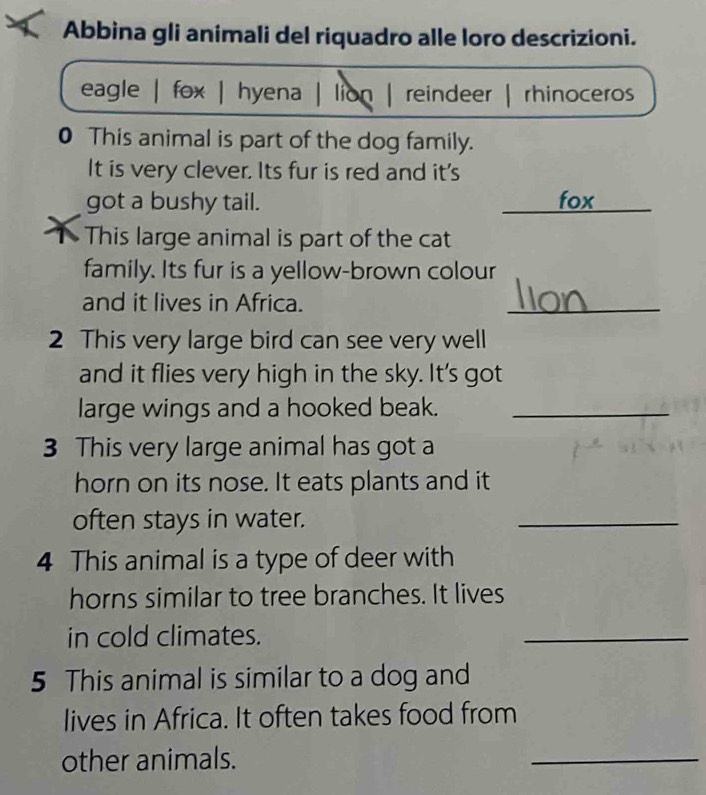 Abbina gli animali del riquadro alle loro descrizioni.
eagle | fox | hyena | lion | reindeer | rhinoceros
0 This animal is part of the dog family.
It is very clever. Its fur is red and it's
got a bushy tail. fox
1 This large animal is part of the cat
family. Its fur is a yellow-brown colour
and it lives in Africa. lion
2 This very large bird can see very well
and it flies very high in the sky. It's got
large wings and a hooked beak.
3 This very large animal has got a
horn on its nose. It eats plants and it
often stays in water.
4 This animal is a type of deer with
horns similar to tree branches. It lives
in cold climates.
5 This animal is similar to a dog and
lives in Africa. It often takes food from
other animals.